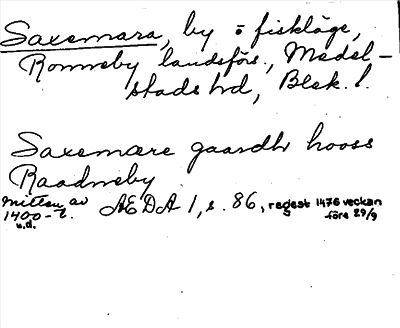 Saxemara, by o fiskläge,
Ronneby landsförs., Medel-
stads hd, Blek. l.
Saxemære gaardh hooss
Raadneby
mitten av
1400-t.
u.d.
AEDA 1, s. 86, regest 1476 veckan
före 29/9